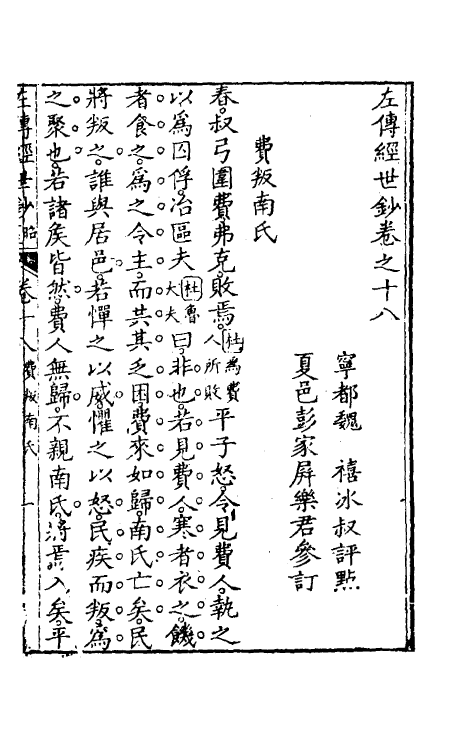 左傳經世鈔卷之十八
寧都魏　禧冰叔評點
夏邑彭家屏樂君參訂
費叛南氏
春叔弓圍費弗克敗焉杜為費人所敗平子怒令見費人執之
以為囚俘冶區夫杜魯大夫曰非也若見費人寒者衣之饑
者食之為之令主而共其乏困費來如歸南氏亡矣民
將叛之誰與居邑若憚之以威懼之以怒民疾而叛為
之聚也若諸矦皆然費人無歸不親南氏將焉入矣平
左傳經世鈔 昭 卷十八 費叛南氏 一